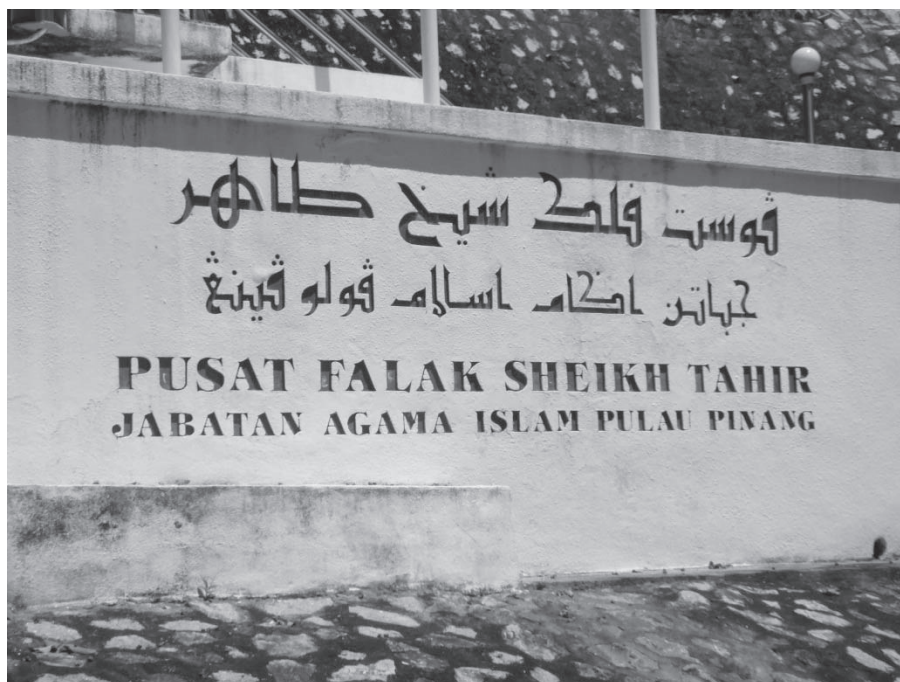 ڤوست فلك شيخ طاهر
جباتن اݢام اسلام ڤولو ڤينڠ
PUSAT FALAK SHEIKH TAHIR
JABATAN AGAMA ISLAM PULAU PINANG